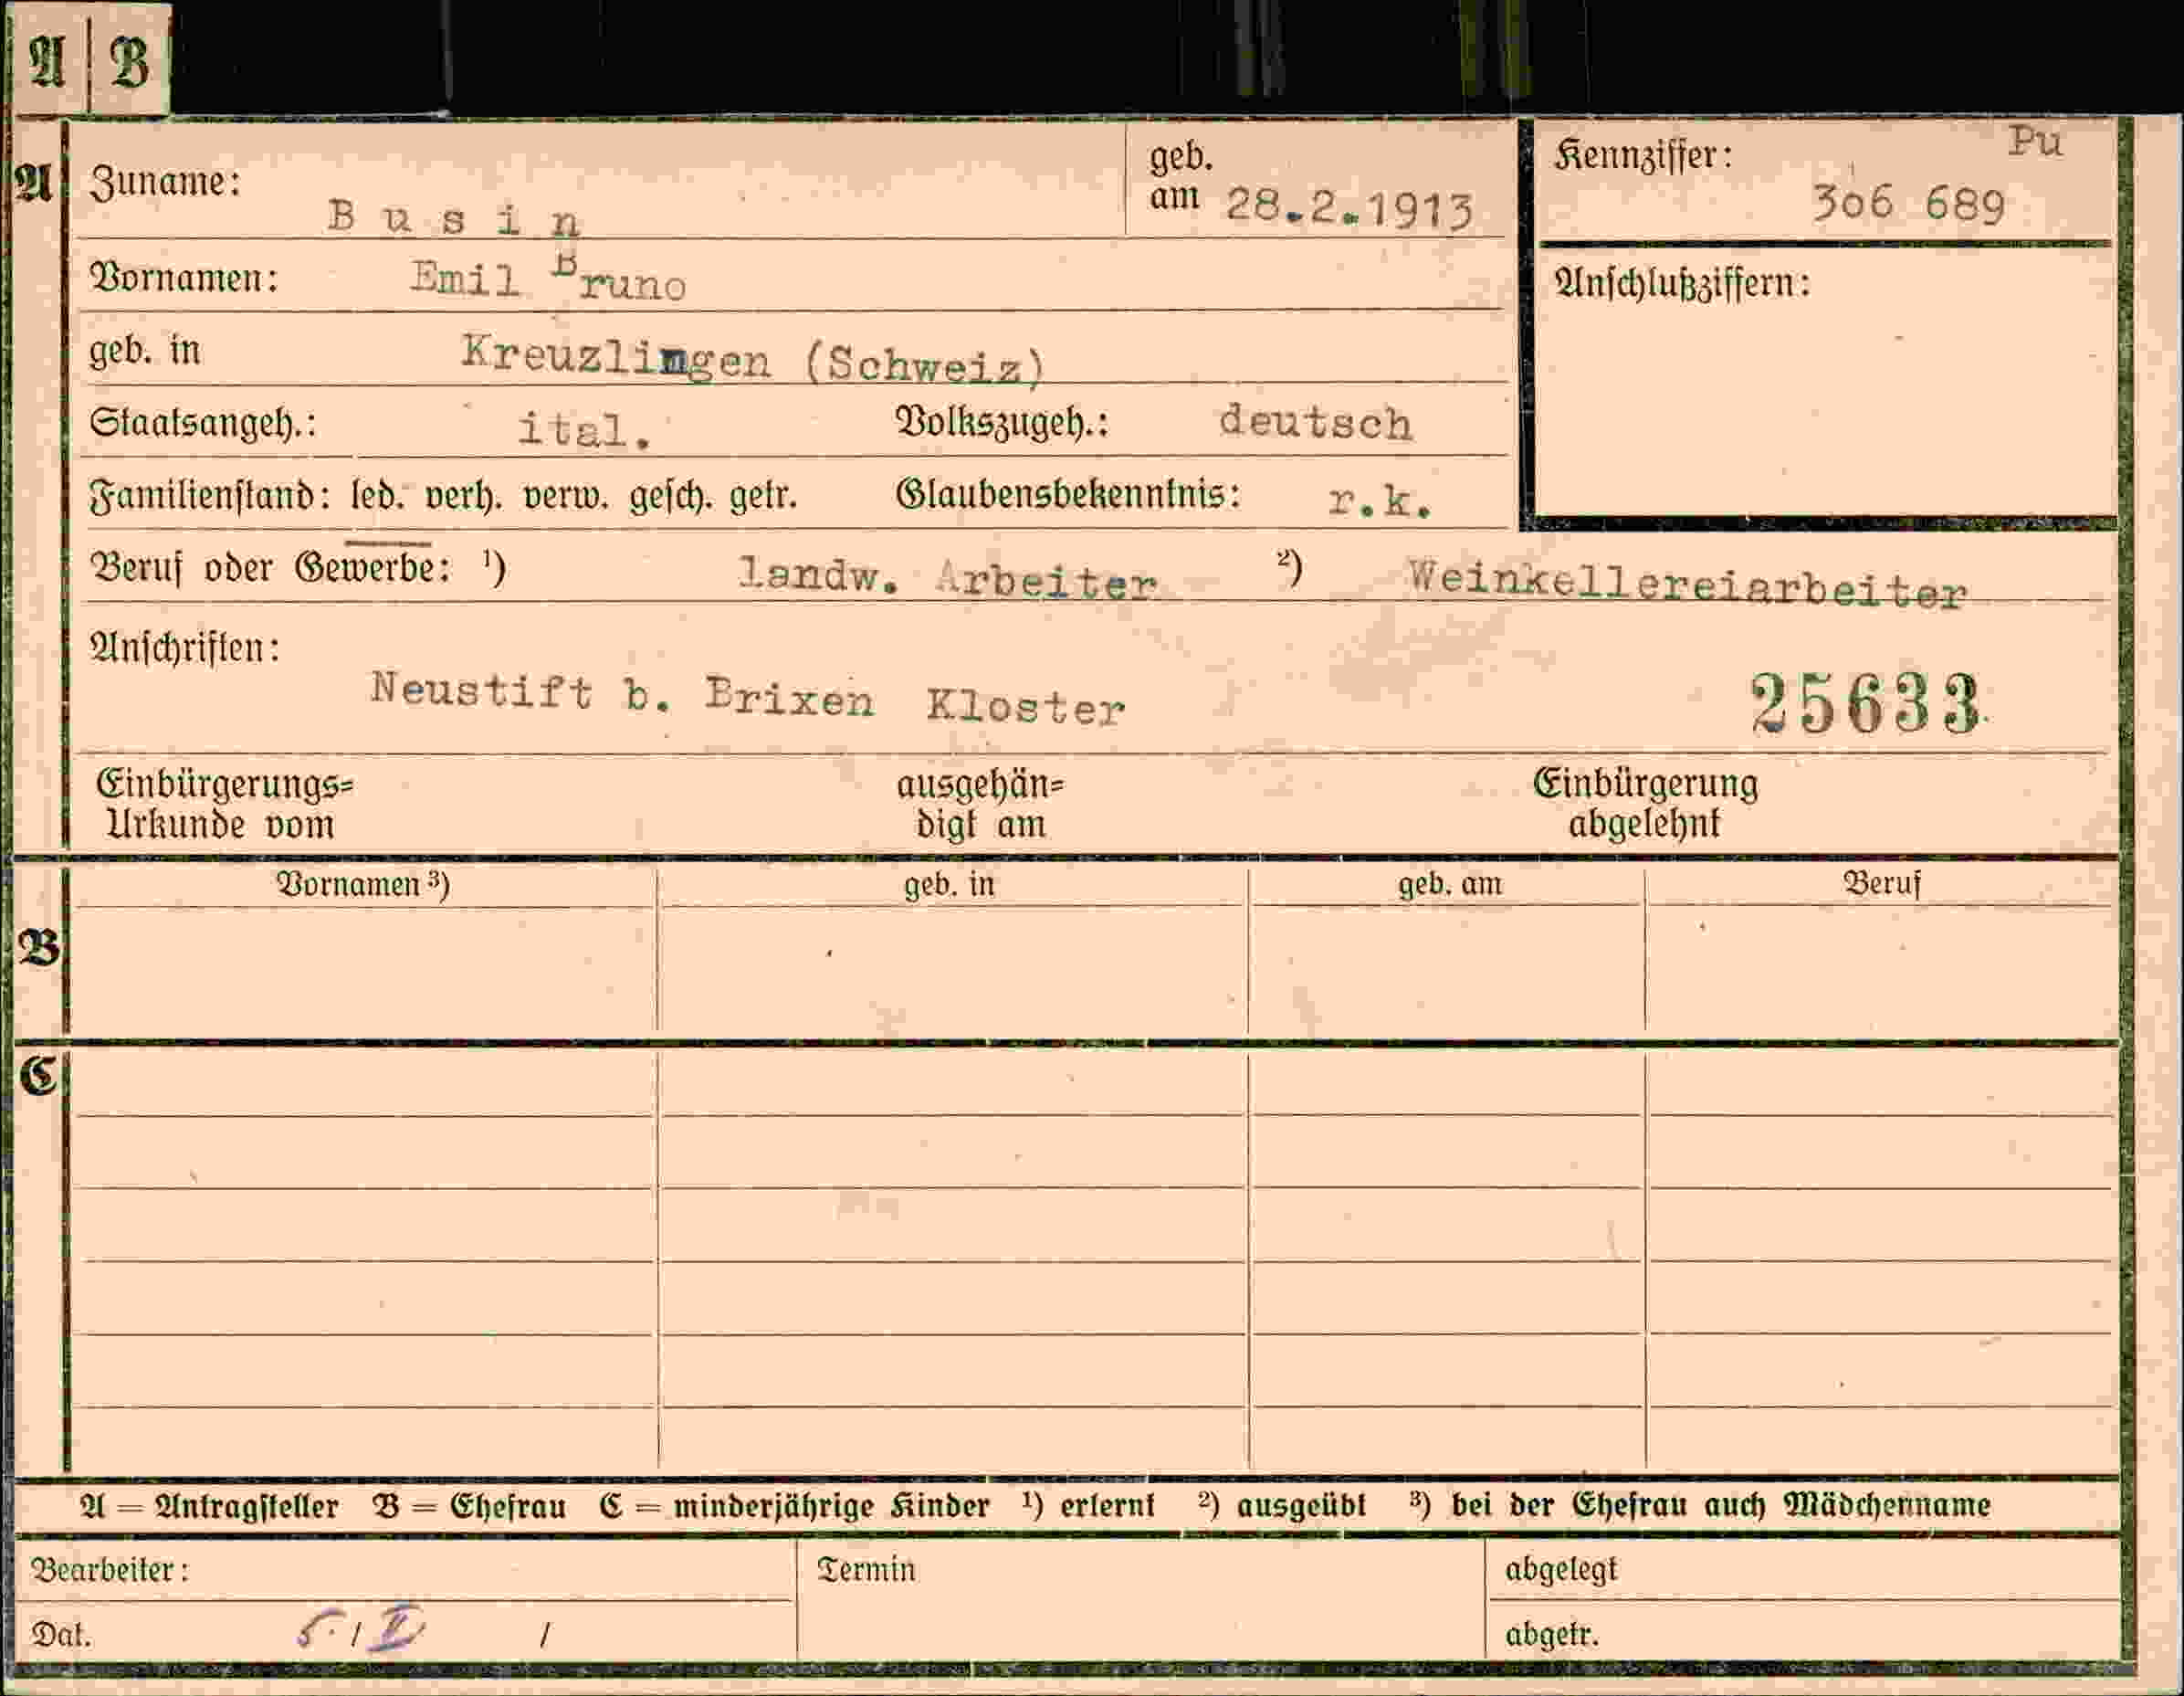 A B
A Zuname: Busin geb. am 28.2.1913 Kennziffer: Pu 306 689
Vornamen: Emil Bruno Anschlußziffern:
geb. in Kreuzlingen (Schweiz)
Staatsangeh.: ital. Volkszugeh.: deutsch
Familienstand: led. verh. verw. gesch. getr. Glaubensbekenntnis: r.k.
Beruf oder Gewerbe: ¹) landw. Arbeiter ²) Weinkellereiarbeiter
Anschriften:
Neustift b. Brixen Kloster 25633
Einbürgerungs= ausgehän= Einbürgerung
Urkunde vom digt am abgelehnt
Vornamen ³) geb. in geb. am Beruf
B
C
A = Antragsteller B = Ehefrau C = minderjährige Kinder ¹) erlernt ²) ausgeübt ³) bei der Ehefrau auch Mädchenname
Bearbeiter: Termin abgelegt
Dat. 5. / II / abgetr.